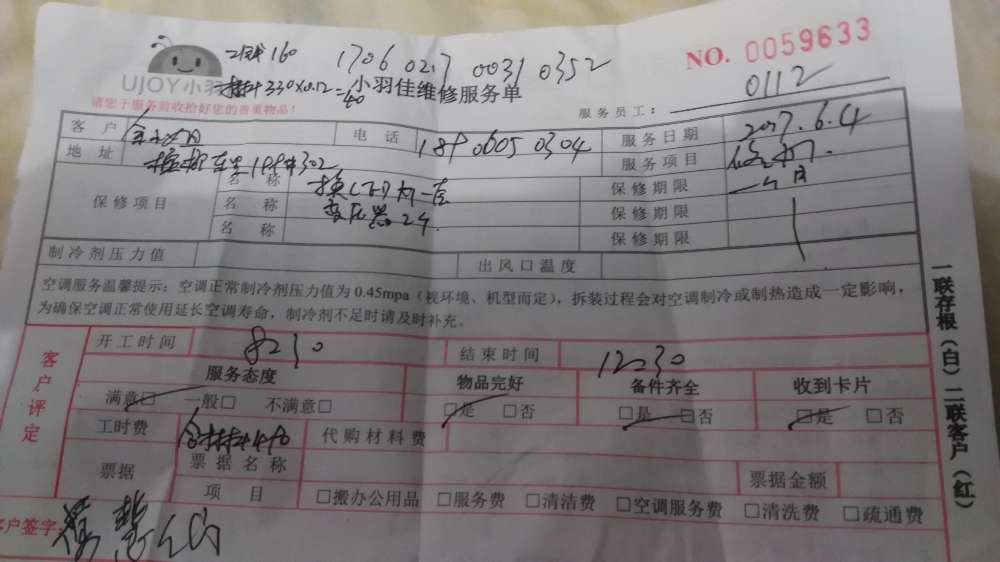 160 1706 0217 0031 0352
NO. 0059633
UJOY小羽 330×0.12=40 小羽佳维修服务单
0112
请您于服务前收拾好您的贵重物品! 服务员工:
客户 电话 189 0605 0304 服务日期 2017.6.4
地址 198#302 服务项目
保修项目 名称 换 保修期限 一个月
名称 变压器2个 保修期限
名称 保修期限
制冷剂压力值 出风口温度
空调服务温馨提示:空调正常制冷剂压力值为0.45mpa(视环境、机型而定),拆装过程会对空调制冷或制热造成一定影响,
为确保空调正常使用延长空调寿命,制冷剂不足时请及时补充。
客户评定
开工时间 8:30 结束时间 12:30
服务态度 物品完好 备件齐全 收到卡片
满意□ 一般□ 不满意□ □是 □否 □是 □否 □是 □否
工时费 代购材料费
票据 票据名称 票据金额
项目 □搬办公用品 □服务费 □清洁费 □空调服务费 □清洗费 □疏通费
客户签字:
一联存根(白)二联客户(红)